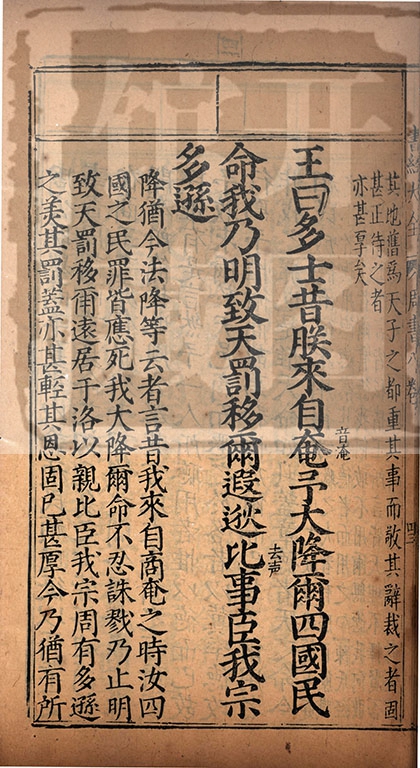 其地舊為天子之都重其事而敬其辭裁之者固
甚正待之者
亦甚厚矣
王曰多士昔朕來自奄予大降爾四國民
音奄
命我乃明致天罰移爾遐逖比事臣我宗
去声
多遜
降猶今法降等云者言昔我來自商奄之時汝四
國之民罪皆應死我大降爾命不忍誅戮乃止明
致天罰移爾遠居于洛以親比臣我宗周有多遜
之美其罰蓋亦甚輕其恩固已甚厚今乃猶有所